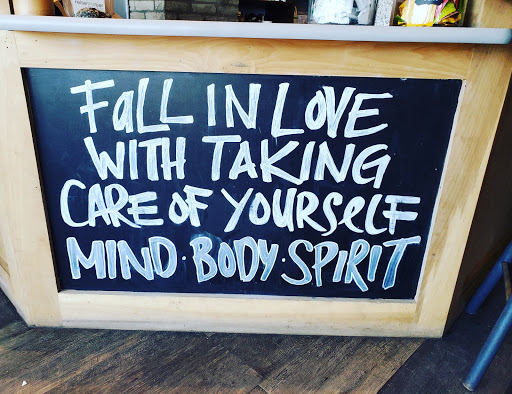 FaLL IN LOVE
WITH TAKING
CARE OF YOURSeLF
MIND·BODY·SPIRIT